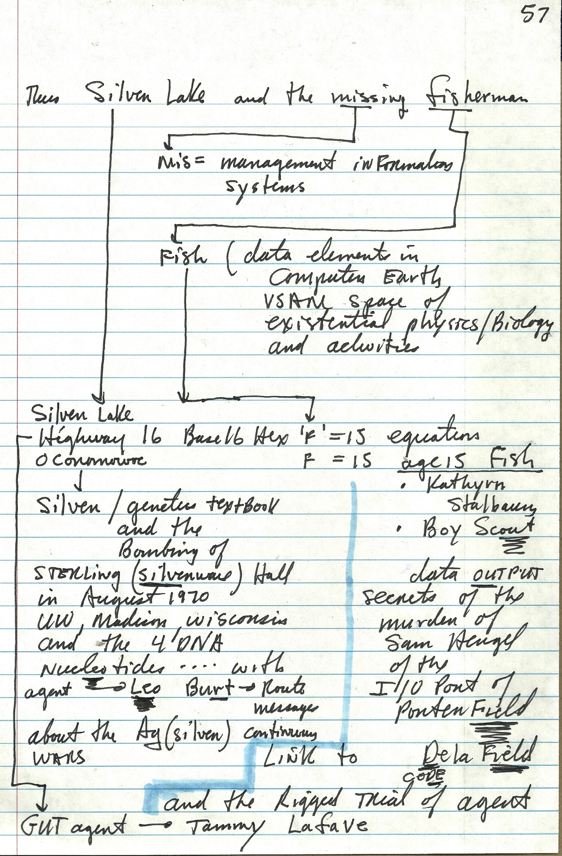 57
Thus Silver Lake and the missing fisherman
Mis = management information
systems
Fish (data elements in
Computer Earth
VSAM space of
existential physics/Biology
and activities
Silver Lake
Highway 16 Base 16 Hex 'F' = 15 equations
Oconomowoc F = 15 age 15 Fish
• Kathyrn
Stalbaum
• Boy Scout
Silver/genetics textBook
and the
Bombing of
STERling (silverware) Hall
in August 1970
UW, Madison, wisconsin
and the 4 DNA
Nucleotides .... with
agent → Leo Burt → Route
messages
about the Ag (silver) continuing
WARS
data OUTPUT
secrets of the
murder of
Sam Hengel
of the
I/O Port of
Porterfield
LINK to Delafield
CODE
and the Rigged Trial of agent
GUT agent → Tammy Lafave